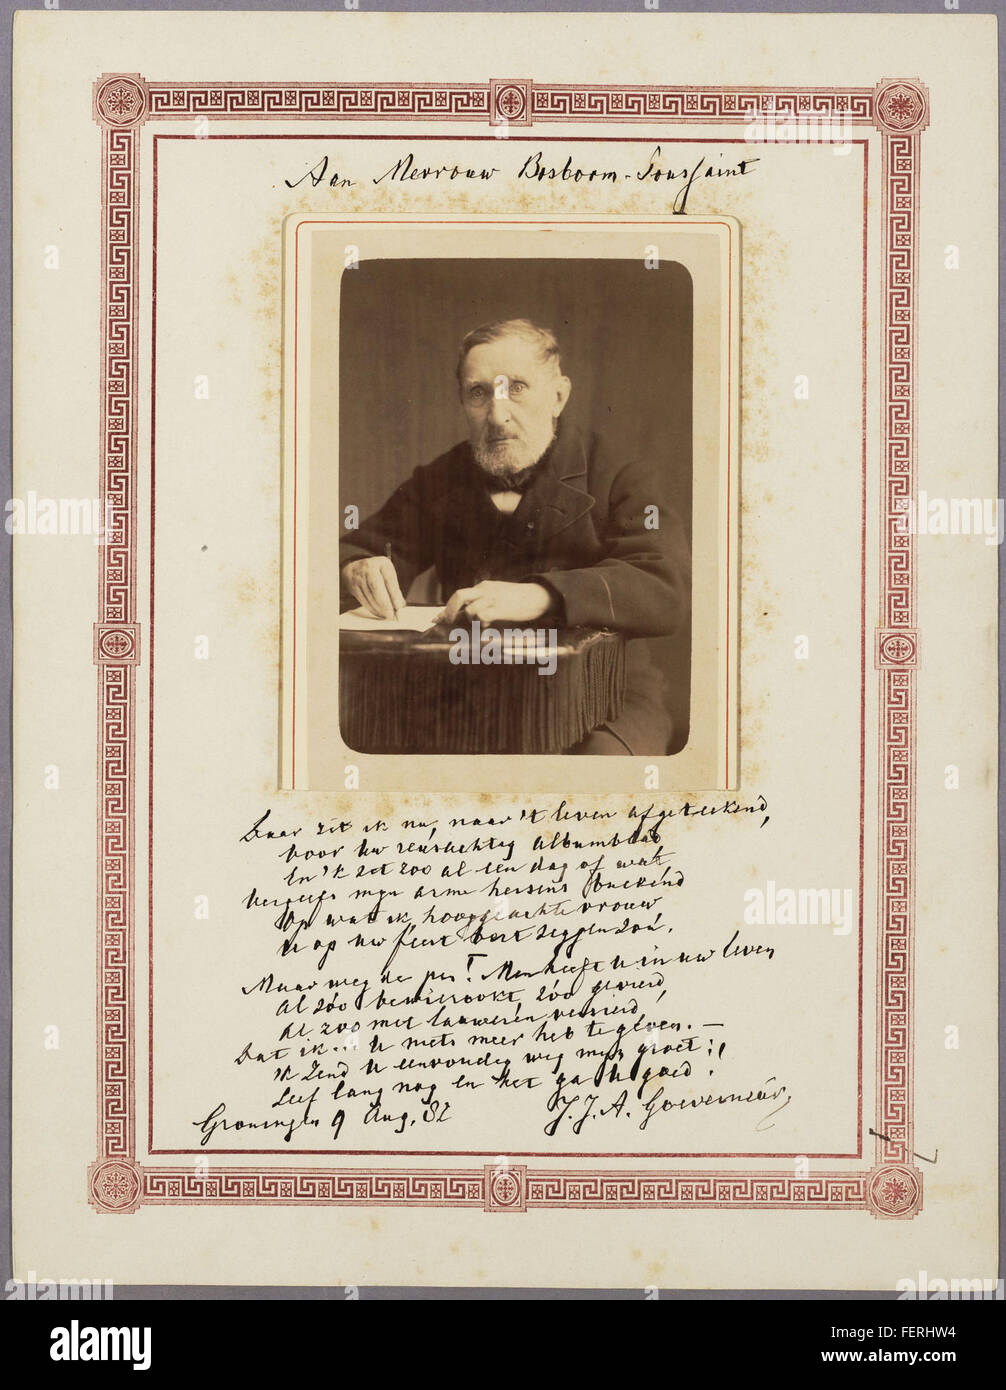 Aan Mevrouw Bosboom-Toussaint
Daar zit ik nu, naar 't leven afgeteekend,
Voor Uw reusachtig albumblad
En 'k zet zoo al een dag of wat
Vergeefs mijn arme hersens brekend
Op wat ik, hooggeachte vrouw
U op Uw feest toch zeggen zou.
Maar weg de pen! Men heeft U in uw leven
Al zóó bewierookt, zóó gevierd,
Al zoo met lauweren versierd,
Dat ik... U niets meer heb te geven. —
'k Zend U eenvoudig weg mijn groet:
Leef lang nog En het ga U goed!
Groningen 9 Aug. 82
J.J.A. Goeverneur,
77
alamy
a
alamy stock photo
FERHW4
www.alamy.com